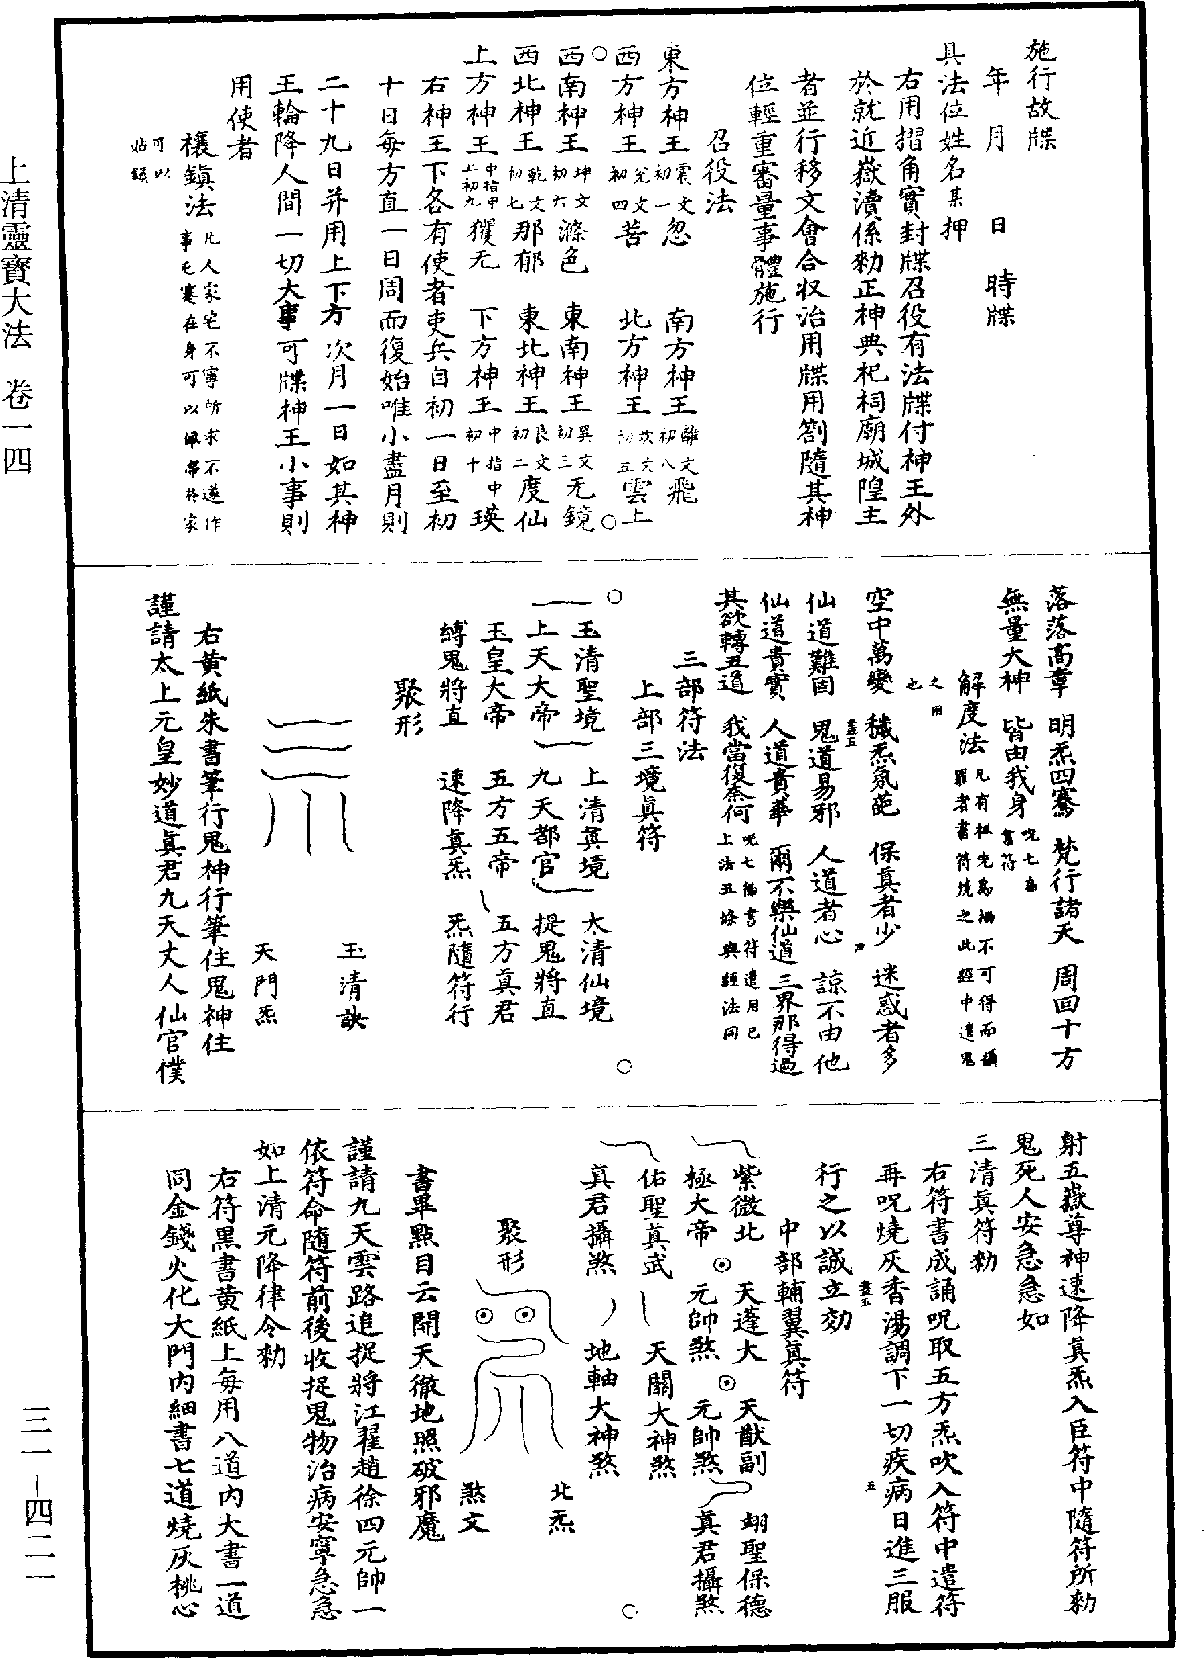 上清靈寶大法 卷一四
三一-四二二
施行故牒
年 月 日 時牒
具法位姓名某押
右用摺角實封牒召役有法牒付神王外
於就近嶽瀆係勑正神典祀祠廟城隍主
者並行移文會合収治用牒用劄隨其神
位輕重審量事體施行
召役法
東方神王震文初一忽 南方神王離文初八飛
西方神王兌文初四菩 北方神王坎文初五雲上
西南神王坤文初六滌色 東南神王巽文初三无鏡
西北神王乾文初七那郁 東北神王艮文初二度仙
上方神王中指中上初九玃无 下方神王中指中初十瑛
右神王下各有使者吏兵自初一日至初
十日每方直一日周而復始唯小盡月則
二十九日并用上下方次月一日如其神
王輪降人間一切大事可牒神王小事則
用使者
禳鎮法凡人家宅不寧所求不遂作事屯蹇在身可以佩帶於家
可以帖鎮
落落高韋 明炁四騫 梵行諸天 周回十方
無量大神 皆由我身呪七遍書符
解度法凡有祖先為禍不可得而攝罪者書符燒之此經中遣鬼
之用也
空中萬變 穢炁氛葩 保真者少 迷惑者多
仙道難固 鬼道易邪 人道者心 諒不由他
仙道貴實 人道貴華 爾不樂仙道 三界那得過
其欲轉五道 我當復奈何呪七徧書符遣用已上法五條與經法同
三部符法
上部三境真符
玉清聖境 上清真境 太清仙境
上天大帝 九天都官 捉鬼將直
玉皇大帝 五方五帝 五方真君
縛鬼將直 速降真炁 炁隨符行
聚形
玉清訣
天門炁
右黃紙朱書筆行鬼神行筆住鬼神住
謹請太上元皇妙道真君九天丈人仙官僕
射五嶽尊神速降真炁入臣符中隨符所勑
鬼死人安急急如
三清真符勑
右符書成誦呪取五方炁吹入符中遣符
再呪燒灰香湯調下一切疾病日進三服
行之以誠立効
中部輔翼真符
紫微北 天蓬大 天猷副 翊聖保德
極大帝 元帥煞 元帥煞 真君攝煞
佑聖真武 天關大神煞
真君攝煞 地軸大神煞
聚形
北炁
煞文
書畢點目云開天徹地照破邪魔
謹請九天雲路追捉將江翟趙徐四元帥一
依符命隨符前後收捉鬼物治病安寧急急
如上清元降律令勑
右符黑書黃紙上每用八道內大書一道
同金錢火化大門內細書七道燒灰桃心